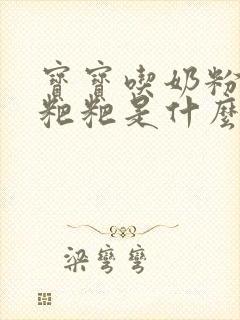 寶寶喫奶粉
粑粑是什麼
梁彎彎